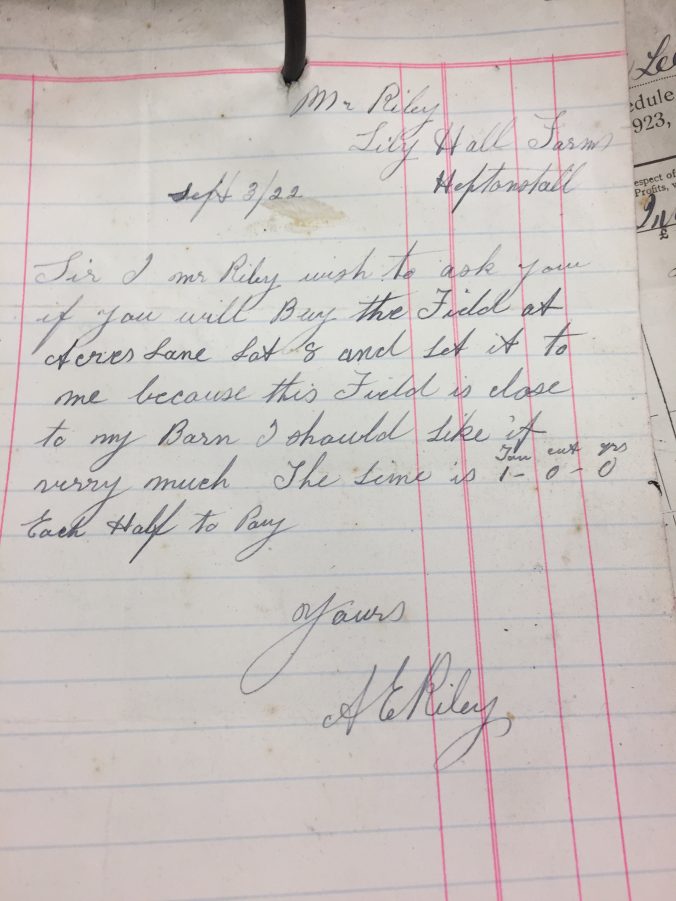 Mr Riley
Lily Hall Farm
Heptonstall
Sept 3/22
Sir I mr Riley wish to ask you
if you will Buy the Field at
Acres Lane Lot 8 and Let it to
me because this Field is close
to my Barn I should Like it
verry much The Lime is 1 - 0 - 0
Ton cwt qrs
Each Half to Pay
Yours
A E Riley
Le
edule
923,
espect of
Profits, w
£